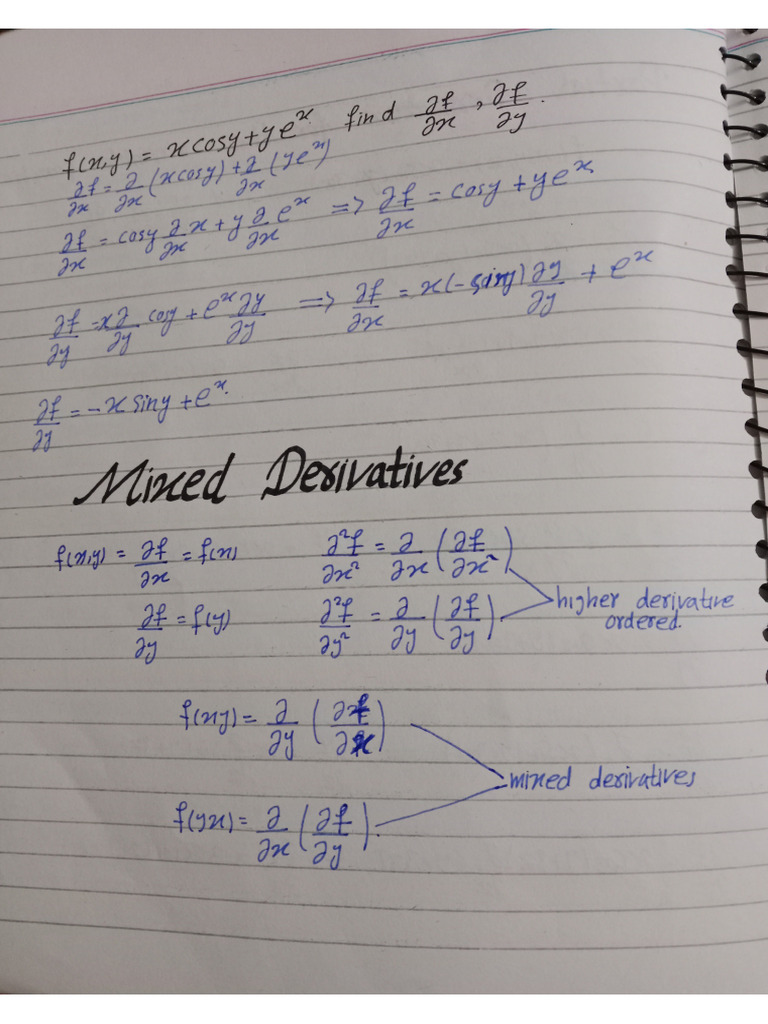 f(x,y) = x cosy + y eˣ find ∂f/∂x , ∂f/∂y.
∂f/∂x = ∂/∂x (x cosy) + ∂/∂x (y eˣ)
∂f/∂x = cosy ∂/∂x x + y ∂/∂x eˣ => ∂f/∂x = cosy + y eˣ
∂f/∂y = x ∂/∂y cosy + eˣ ∂y/∂y => ∂f/∂x = x(-siny) ∂y/∂y + eˣ
∂f/∂y = -x siny + eˣ.
Mixed Derivatives
f(x,y) = ∂f/∂x = f(x) ∂²f/∂x² = ∂/∂x (∂f/∂x²)
∂f/∂y = f(y) ∂²f/∂y² = ∂/∂y (∂f/∂y)
higher derivative
ordered.
f(xy) = ∂/∂y (∂f/∂x)
mixed derivatives
f(yx) = ∂/∂x (∂f/∂y).